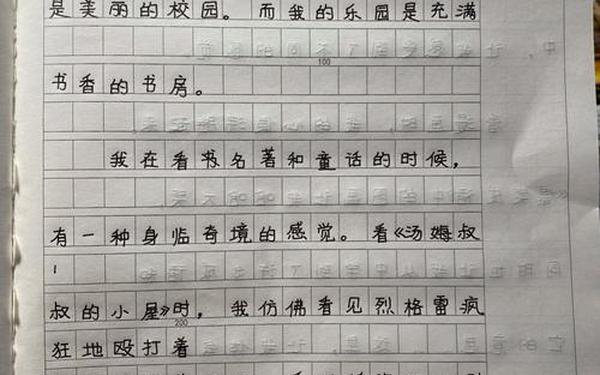 是美丽的校园。而我的乐园是充满
100
书香的书房。
我在看书名著和童话的时候，
有一种身临奇境的感觉。看《汤姆叔
叔的小屋》时，我仿佛看见烈格雷疯
200
狂地殴打着